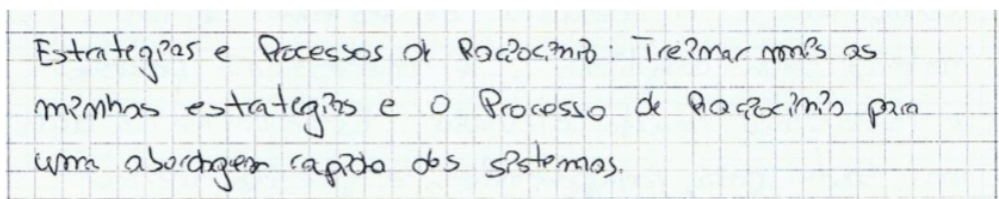 Estrategias e Processos de Raciocinio: Treinar mais as
minhas estrategias e o Processo de Raciocinio para
uma abordagem rapida dos sistemas.